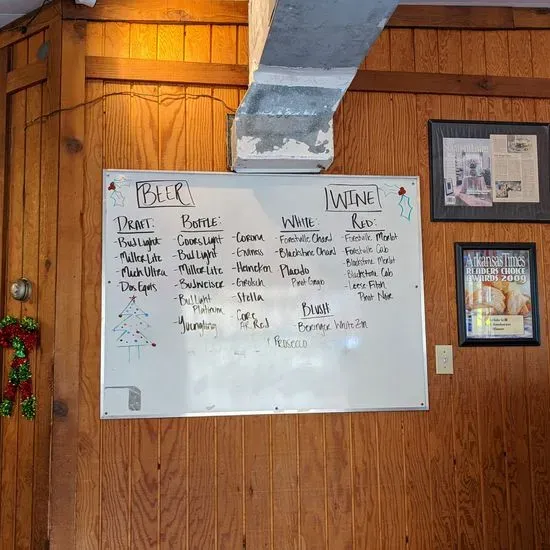 BEER
WINE
DRAFT:
Bud Light
Miller Lite
Mich Ultra
Dos Equis
BOTTLE:
Coors Light
Bud Light
Miller Lite
Budweiser
Bud Light
Platinum
Yuengling
- Corona
- Guiness
- Heineken
- Grolsch
- Stella
- Core
AR. Red
WHITE:
- Forestville Chard
- Blackstone Chard
- Placido
Pinot Grigio
RED:
- Forestville Merlot
- Forestville Cab
- Blackstone Merlot
- Blackstone Cab
- Leese Fitch
Pinot Noir
BLUSH
Beringer White Zin
PROSECCO
Arkansas Times
READERS CHOICE
AWARDS 2009